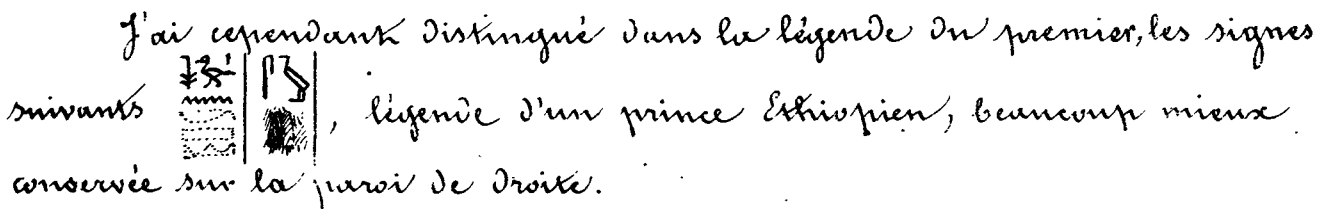 J'ai cependant distingué dans la légende du premier, les signes
suivants , légende d'un prince Ethiopien, beaucoup mieux
conservée sur la paroi de droite.